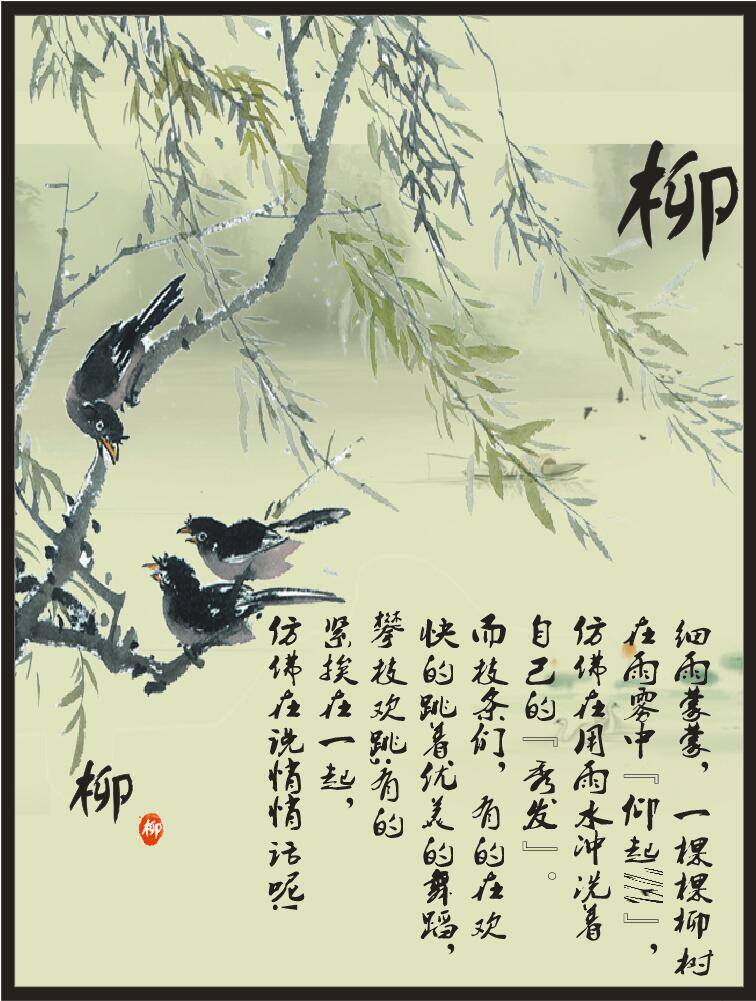 柳
细雨蒙蒙，一棵棵柳树
在雨雾中『仰起』，
仿佛在用雨水冲洗着
自己的『秀发』。
而枝条们，有的在欢
快的跳着优美的舞蹈，
攀枝欢跳有的
紧挨在一起，
仿佛在说悄悄话呢！
柳
柳